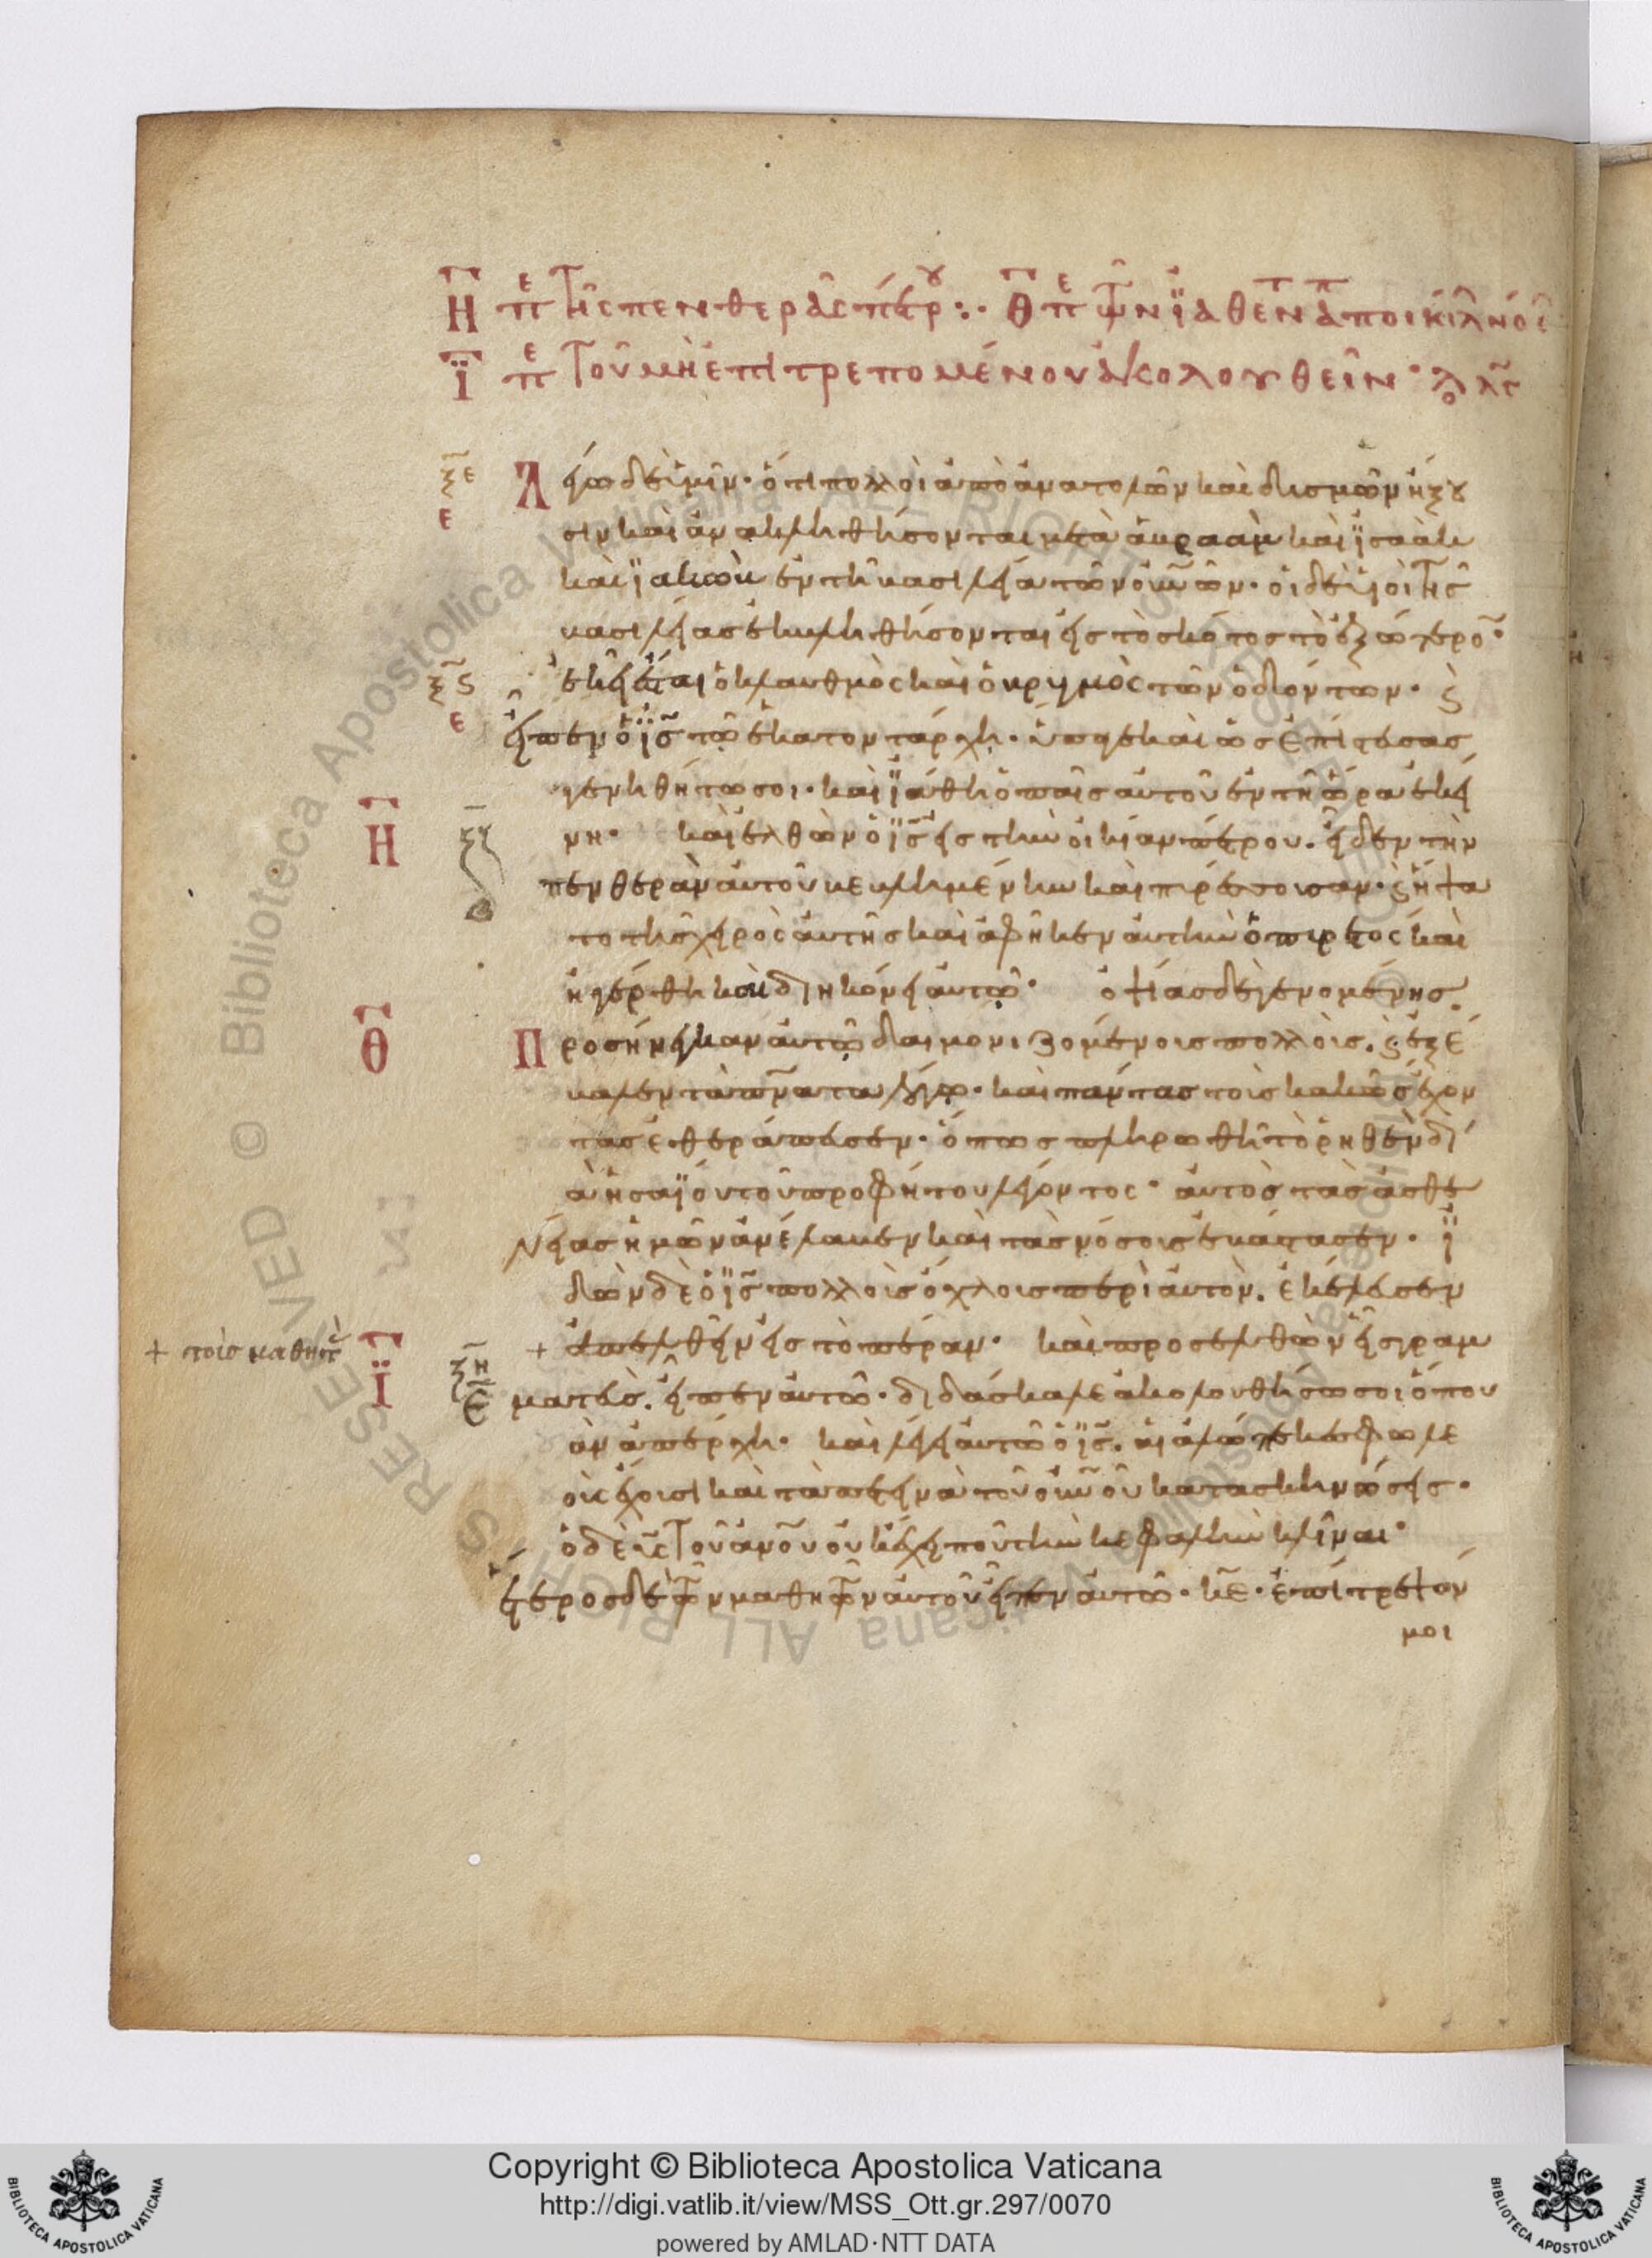 Η πε τῆς πενθερᾶς πέτρου : Θ πε τῶν ἰαθέντ ἀπ ποικίλ νό
Ϊ πε τοῦ μὴ ἐπιτρεπομένου ἀκολουθεῖν
ξε ε Λέγω δὲ ὑμῖν· ὅτι πολλοὶ ἀπὸ ἀνατολῶν καὶ δυσμῶν ἥξου
σιν καὶ ἀνακληθήσονται μετὰ ἀβραὰμ καὶ ϊσαὰκ
καὶ ϊακὼβ ἐν τῆ βασιλεία τῶν οὐνῶν· οἱ δὲ υἱοὶ τῆς
βασιλείας ἐκβληθήσονται εἰς τὸ σκότος τὸ ἐξώτερον·
ξς ε ἐκεῖ ἔσται ὁ κλαυθμὸς καὶ ὁ βρυγμὸς τῶν ὀδόντων· ϛ
εἶπεν ὁ ϊς τῶ ἑκατοντάρχη· ὕπαγε καὶ ὡς ἐπίστευσας
γενηθήτω σοι· καὶ ϊάθη ὁ παῖς αὐτοῦ ἐν τῆ ὥρα ἐκεί
Η ξζ νη· καὶ ἐλθὼν ὁ ϊς εἰς τὴν οἰκίαν πέτρου. εἶδεν τὴν
πενθερὰν αὐτοῦ βεβλημένην καὶ πυρέσσουσαν· ϛ ἥψα
το τῆς χειρὸς αὐτῆς καὶ ἀφῆκεν αὐτὴν ὁ πυρετὸς καὶ
ἠγέρθη καὶ διηκόνει αὐτῶ· ὀψίας δὲ γενομένης.
Θ Προσήνεγκαν αὐτῶ δαιμονιζομένους πολλούς. ϛ ἐξέ
βαλεν τὰ πνατα λόγω· καὶ πάντας τοὺς κακῶς ἔχον
τας ἐθεράπευσεν· ὅπως πληρωθῆ τὸ ῥηθὲν δι
ὰ ἠσαϊου τοῦ προφήτου λέγοντος· αὐτὸς τὰς ἀσθε
νείας ἡμῶν ἀνέλαβεν καὶ τὰς νόσους ἐβάστασεν· ϊ
δὼν δὲ ὁ ϊς πολλοὺς ὄχλους περὶ αὐτὸν. ἐκέλευσεν
+ τοῖς μαθητ Ϊ ξη ε + ἀπελθεῖν εἰς τὸ πέραν· καὶ προσελθὼν εἷς γραμ
ματεὺς. εἶπεν αὐτῶ· διδάσκαλε ἀκολουθήσω σοι ὅπου
ἂν ἀπέρχη· καὶ λέγει αὐτῶ ὁ ϊς. αἱ ἀλώπεκες φωλε
οὺς ἔχουσι καὶ τὰ πετεινὰ τοῦ οὐνοῦ κατασκηνώσεις·
ὁ δὲ υς τοῦ ἀνου οὐκ ἔχει ποῦ τὴν κεφαλὴν κλῖναι·
ἕτερος δὲ τῶν μαθητῶν αὐτοῦ εἶπεν αὐτῶ· κε· ἐπίτρεψόν
μοι
Copyright © Biblioteca Apostolica Vaticana
http://digi.vatlib.it/view/MSS_Ott.gr.297/0070
powered by AMLAD·NTT DATA